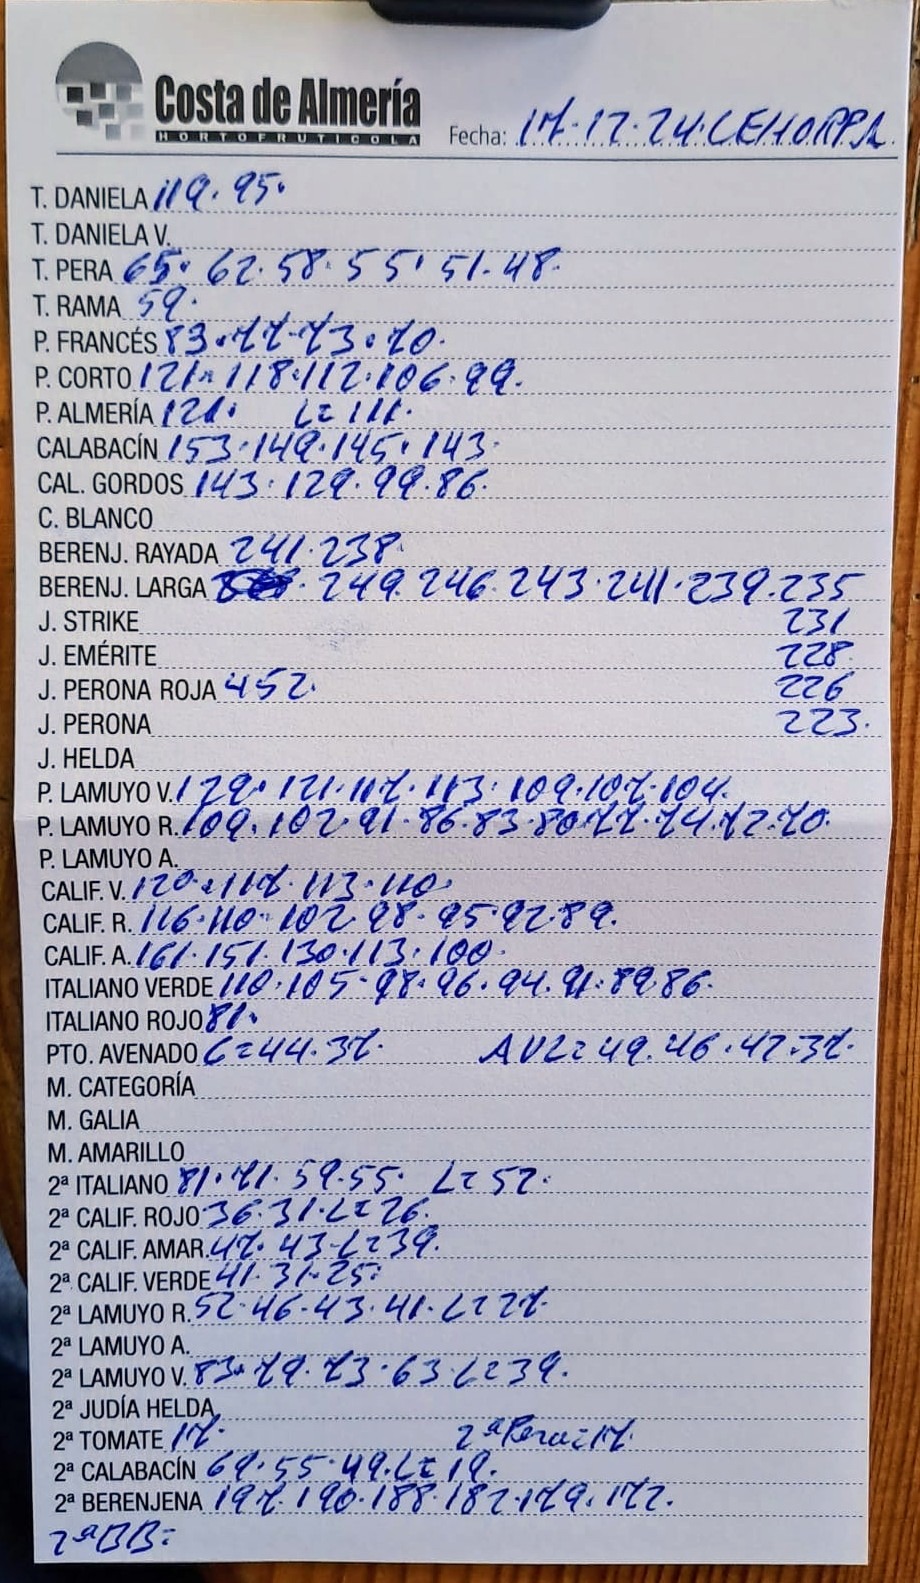 Costa de Almería
HORTOFRUTICOLA
Fecha: 17.12.24.CEHORPA
T. DANIELA 119. 95.
T. DANIELA V.
T. PERA 65. 62. 58. 55. 51. 48.
T. RAMA 59.
P. FRANCÉS 83. 77. 73. 70.
P. CORTO 121. 118. 112. 106. 99.
P. ALMERÍA 121. L= 111.
CALABACÍN 153. 149. 145. 143.
CAL. GORDOS 143. 129. 99. 86.
C. BLANCO
BERENJ. RAYADA 241. 238.
BERENJ. LARGA 249. 246. 243. 241. 239. 235
J. STRIKE 231
J. EMÉRITE 228
J. PERONA ROJA 452. 226
J. PERONA 223.
J. HELDA
P. LAMUYO V. 129. 121. 117. 113. 109. 107. 104.
P. LAMUYO R. 109. 102. 91. 86. 83. 80. 77. 74. 72. 70.
P. LAMUYO A.
CALIF. V. 120. 117. 113. 110.
CALIF. R. 116. 110. 102. 98. 95. 92. 89.
CALIF. A. 161. 151. 130. 113. 100.
ITALIANO VERDE 110. 105. 98. 96. 94. 91. 89. 86.
ITALIANO ROJO 81.
PTO. AVENADO C=44. 37. AVL=49. 46. 42. 37.
M. CATEGORÍA
M. GALIA
M. AMARILLO
2ª ITALIANO 81. 71. 59. 55. L= 52.
2ª CALIF. ROJO 36. 31. L= 26.
2ª CALIF. AMAR. 47. 43. L= 39.
2ª CALIF. VERDE 41. 31. 25.
2ª LAMUYO R. 52. 46. 43. 41. L= 27.
2ª LAMUYO A.
2ª LAMUYO V. 83. 79. 73. 63. L= 39.
2ª JUDÍA HELDA
2ª TOMATE 17. 2ª Pera= 17.
2ª CALABACÍN 69. 55. 49. L= 19.
2ª BERENJENA 197. 190. 188. 182. 179. 172.
2ª BB=